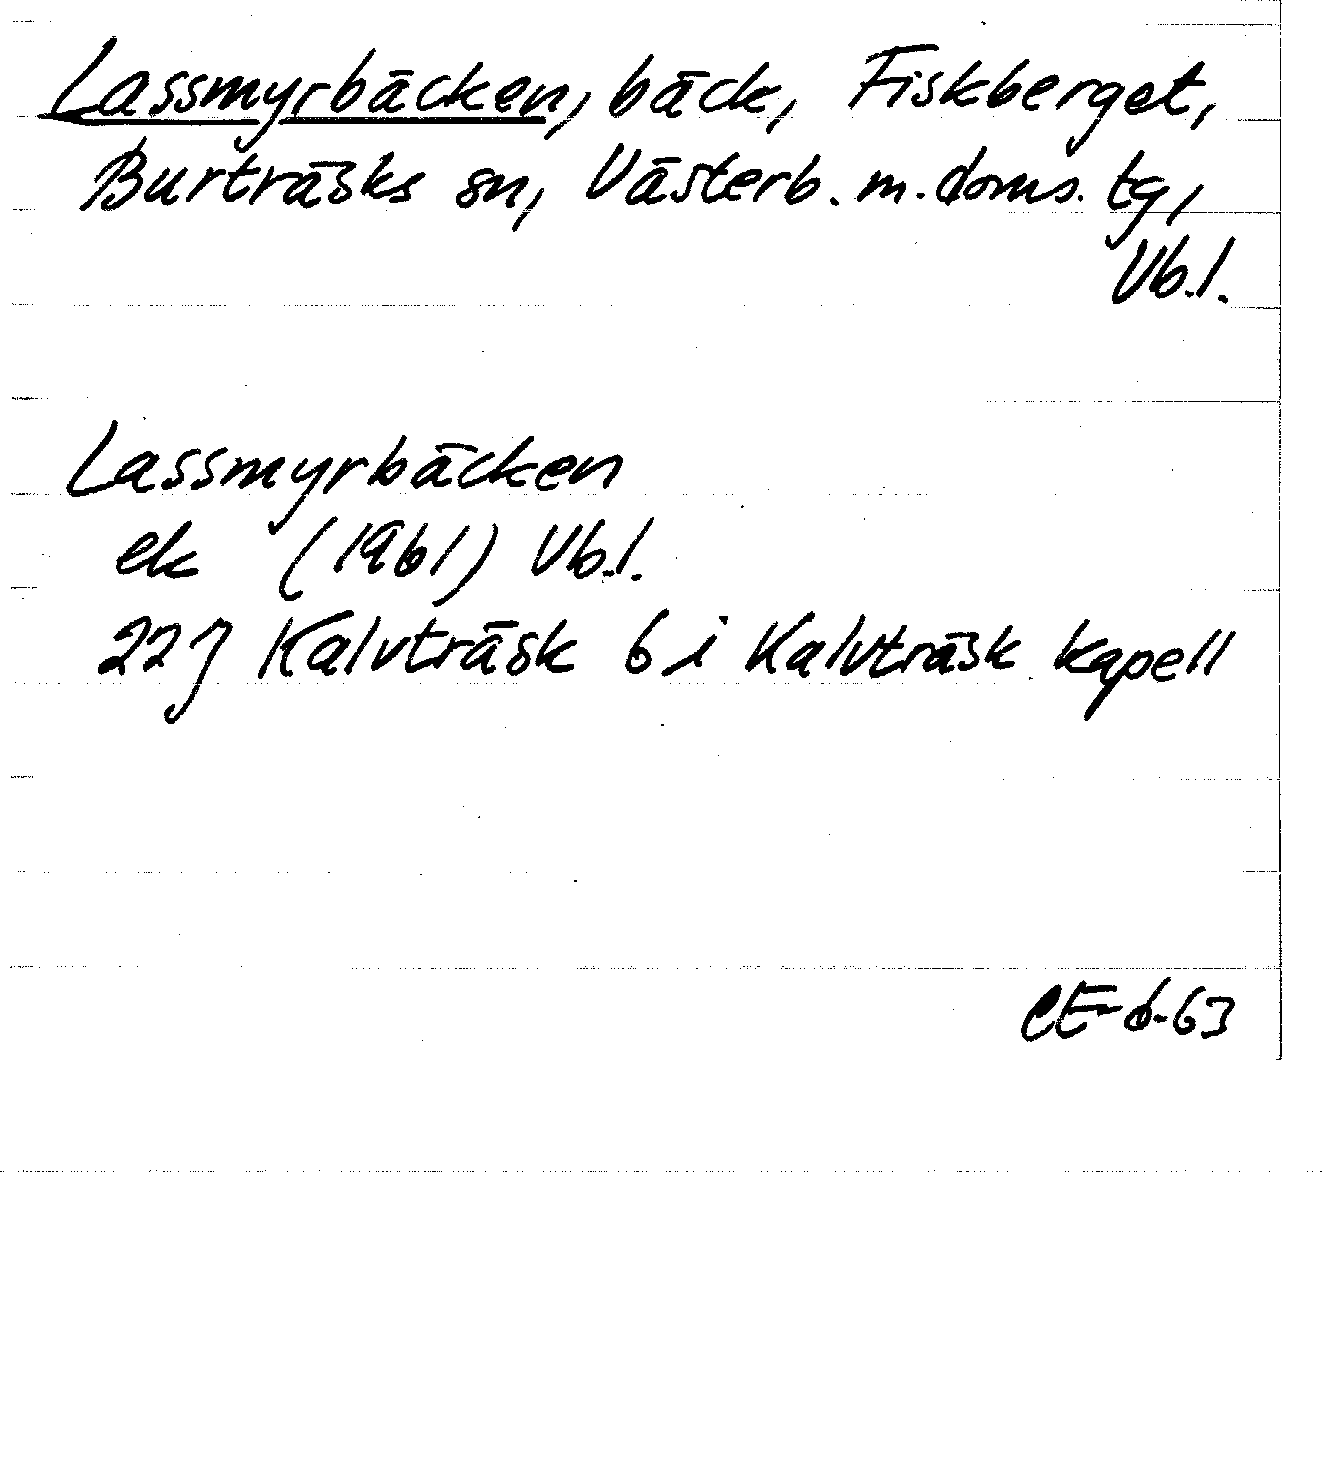 Lassmyrbäcken, bäck, Fiskberget,
Burträsks sn, Västerb. m. doms. tg,
Vb.l.
Lassmyrbäcken
ek (1961) Vb.l.
22J Kalvträsk 6 i Kalvträsk kapell
CE-6-63